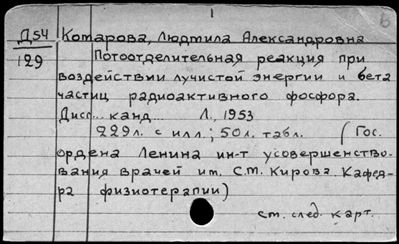 1
Д54 Комарова, Людмила Александровна
129 Потоотделительная реакция при
воздействии лучистой энергии и бета
частиц радиоактивного фосфора.
Дисс... канд... Л., 1953
229л. с илл.; 50л. табл. (Гос.
ордена Ленина ин-т усовершенство-
вания врачей им. С.М. Кирова. Кафед-
ра физиотерапии)
см. след. карт.